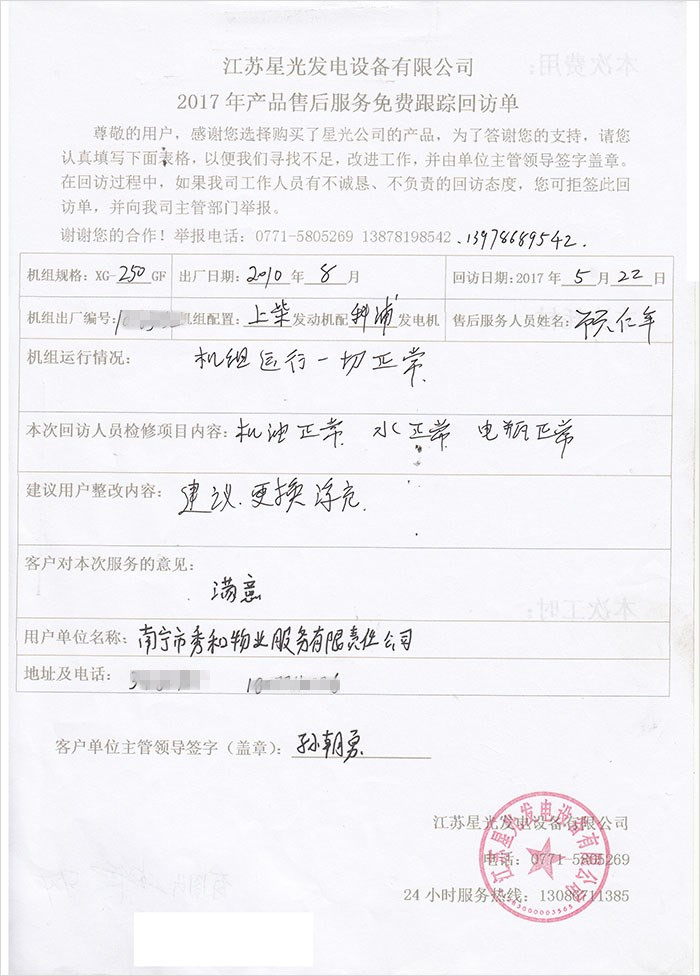 江苏星光发电设备有限公司
2017年产品售后服务免费跟踪回访单
尊敬的用户，感谢您选择购买了星光公司的产品，为了答谢您的支持，请您
认真填写下面表格，以便我们寻找不足，改进工作，并由单位主管领导签字盖章。
在回访过程中，如果我司工作人员有不诚恳、不负责的回访态度，您可拒签此回
访单，并向我司主管部门举报。
谢谢您的合作！举报电话：0771-5805269 13878198542、13978689542.
机组规格：XG-250GF 出厂日期：2010年8月 回访日期：2017年5月22日
机组出厂编号： 机组配置：上柴发动机配科浦发电机 售后服务人员姓名：
机组运行情况： 机组运行一切正常
本次回访人员检修项目内容：机油正常 水正常 电瓶正常
建议用户整改内容： 建议更换浮充
客户对本次服务的意见：
满意
用户单位名称：南宁市秀和物业服务有限责任公司
地址及电话：
客户单位主管领导签字（盖章）：孙朝勇
江苏星光发电设备有限公司
电话：0771-5805269
24小时服务热线：13086711385
江苏星光发电设备有限公司